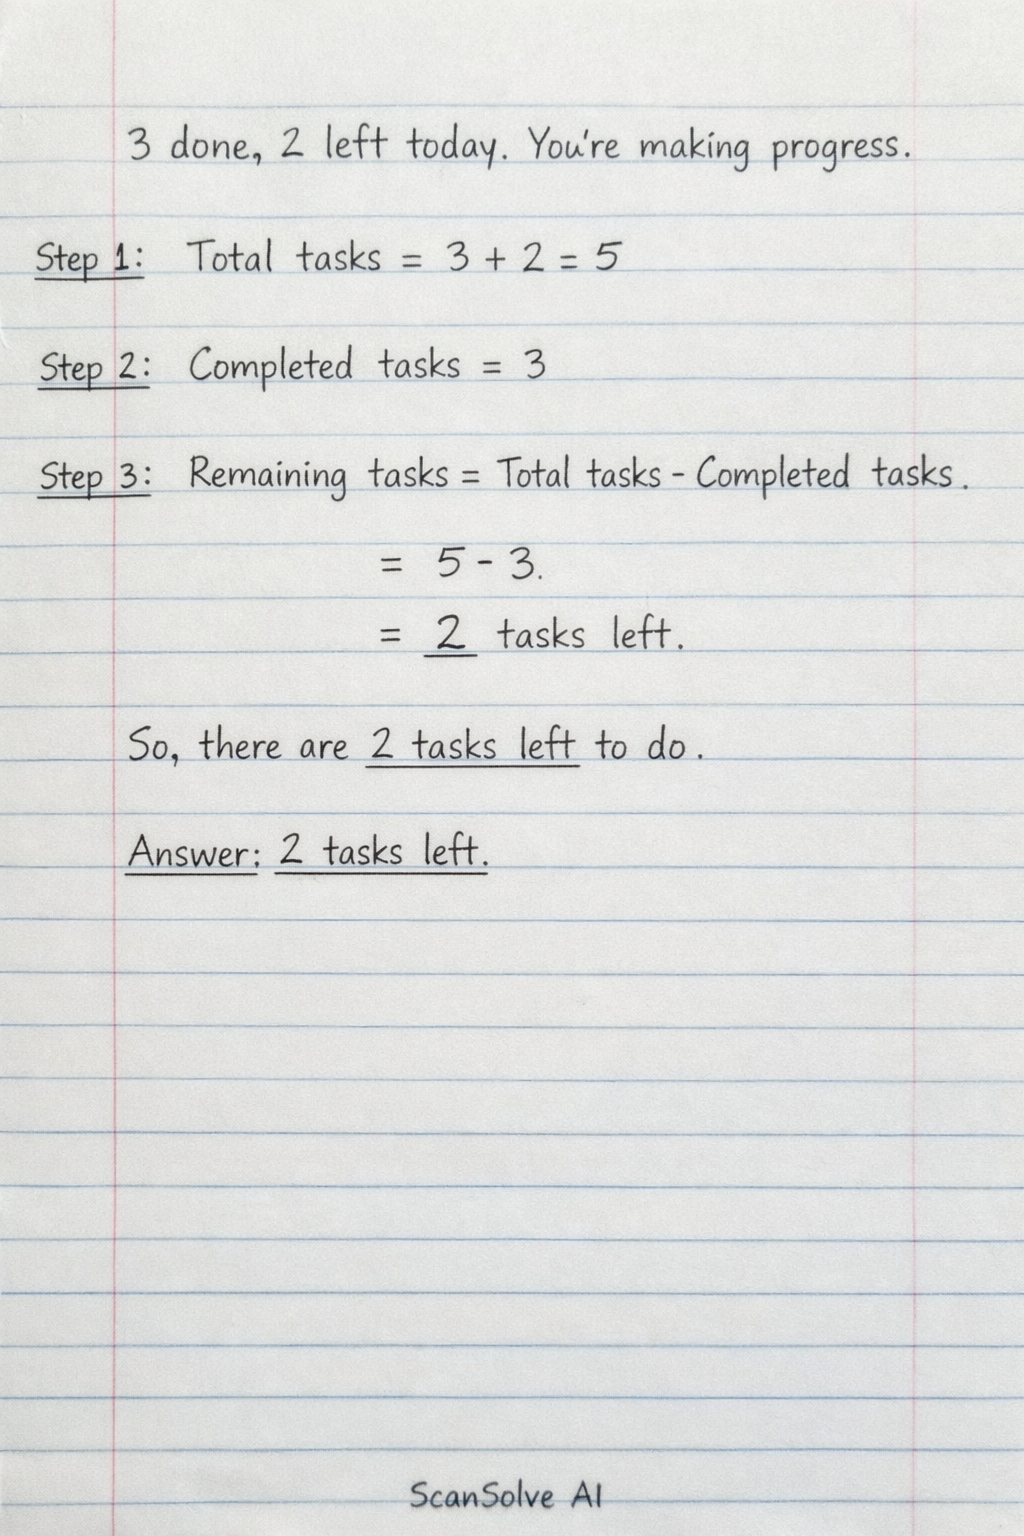 3 done, 2 left today. You're making progress.
Step 1: Total tasks = 3 + 2 = 5
Step 2: Completed tasks = 3
Step 3: Remaining tasks = Total tasks - Completed tasks.
= 5 - 3.
= 2 tasks left.
So, there are 2 tasks left to do.
Answer: 2 tasks left.
ScanSolve AI